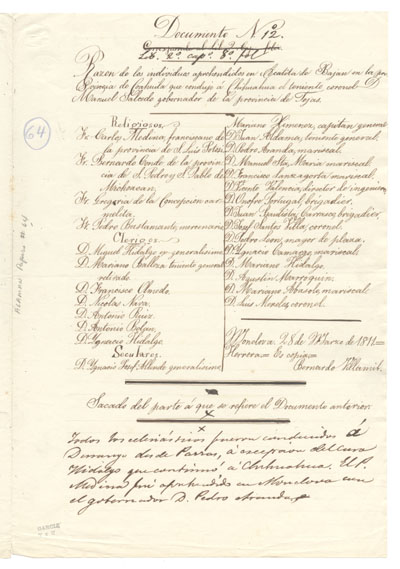 Documento Nº 12.
Lº. 2º. cap. 8º. fol
Razon de los individuos aprehendidos en Acatita de Bajan en la pro
vincia de Coahuila que condujo á Chihuahua el teniente coronel D
Manuel Salcedo gobernador de la provincia de Tejas.
Religiosos.
Fr. Carlos Medina, franciscano de
la provincia de S. Luis Potosi
Fr. Bernardo Conde de la provin
cia de S. Pedro y S. Pablo de
Michoacan
Fr. Gregorio de la Concepcion car-
melita
Fr. Pedro Bustamante, mercenario
Clerigos
D. Miguel Hidalgo ex-generalisimo
D. Mariano Balleza teniente general
D. Francisco Olmedo
D. Nicolas Nava
D. Antonio Ruiz
D. Antonio Belan
D. Ygnacio Hidalgo
Seculares
D. Ygnacio José Allende generalisimo
Mariano Ximenez, capitan general
D. Juan Aldama, teniente general
D. Pedro Aranda, mariscal
D. Manuel Sta. Maria mariscal
D. Francisco Lanzagorta mariscal
D. Vicente Valencia, director de ingenieros
D. Onofre Portugal, brigadier
D. Juan Ygnacio Carrasco, brigadier
D. José Santos Villa, coronel
D. Pedro Leon, mayor de plaza
D. Ygnacio Camargo mariscal
D. Mariano Hidalgo
D. Agustin Marroquin
D. Mariano Abasolo, mariscal
D. Luis Mireles, coronel
Monclova 28 de Marzo de 1811=
Herrera= Es copia=
Bernardo Villamil.
Sacado del parte á que se refiere el Documento anterior.
Todos los eclesiásticos fueron conducidos á
Durango desde Parras, á excepcion del cura
Hidalgo que continuó á Chihuahua. El P.
Medina fué aprehendido en Monclova con
el gobernador D. Pedro Aranda
64
ALAMAN Papers # 64